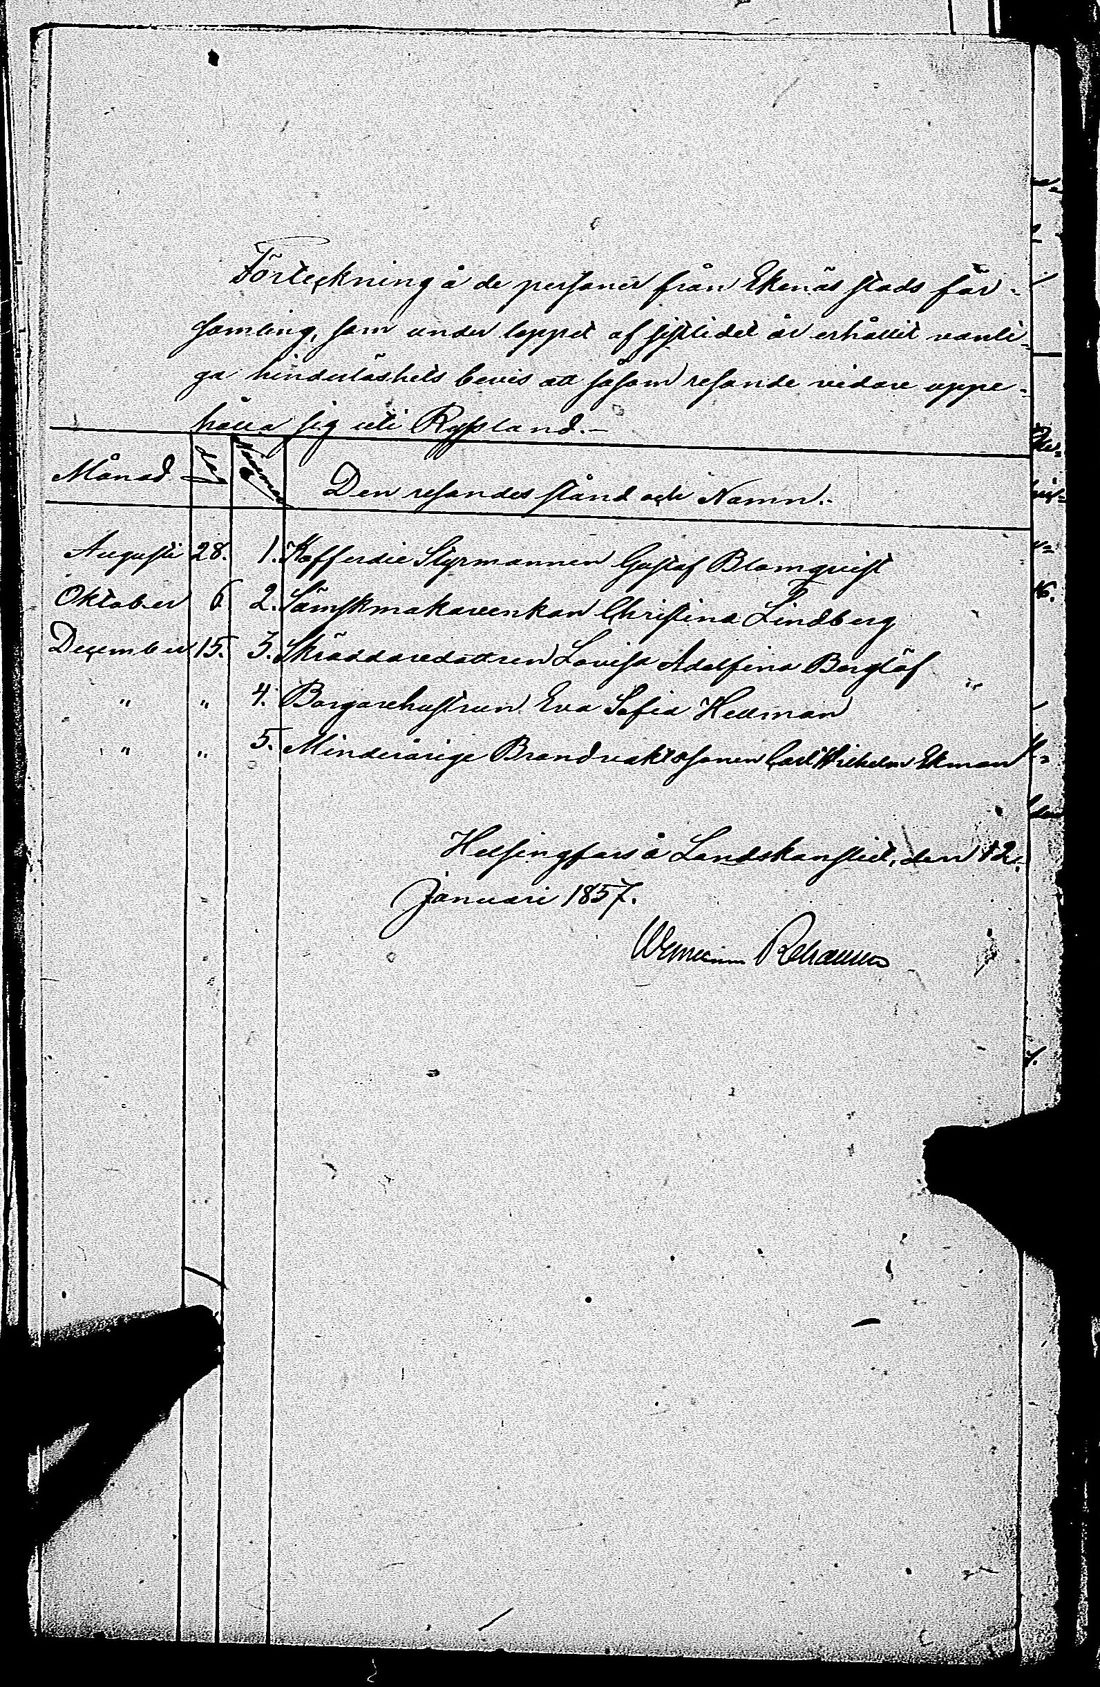 Förteckning å de personer från Ekenäs stads för-
samling, som under loppet af sistlidet år erhållit vanli-
ga hinderlöshets bevis att såsom resande vidare uppe-
hålla sig uti Ryssland.-
Månad dag Nummer Den resandes stånd och Namn.
Augusti 28. 1. Kofferdie Styrmannen Gustaf Blomqvist
Oktober 6. 2. Sämskmakareenkan Christina Lindberg
December 15. 3. Skräddaredottren Lovisa Adolfina Berglöf
" " 4. Borgarehustrun Eva Sofia Hellman
" " 5. Minderårige Brandvaktssonen Carl Wilhelm Ekman
Helsingfors å Landskansliet, den 12.
Januari 1857.